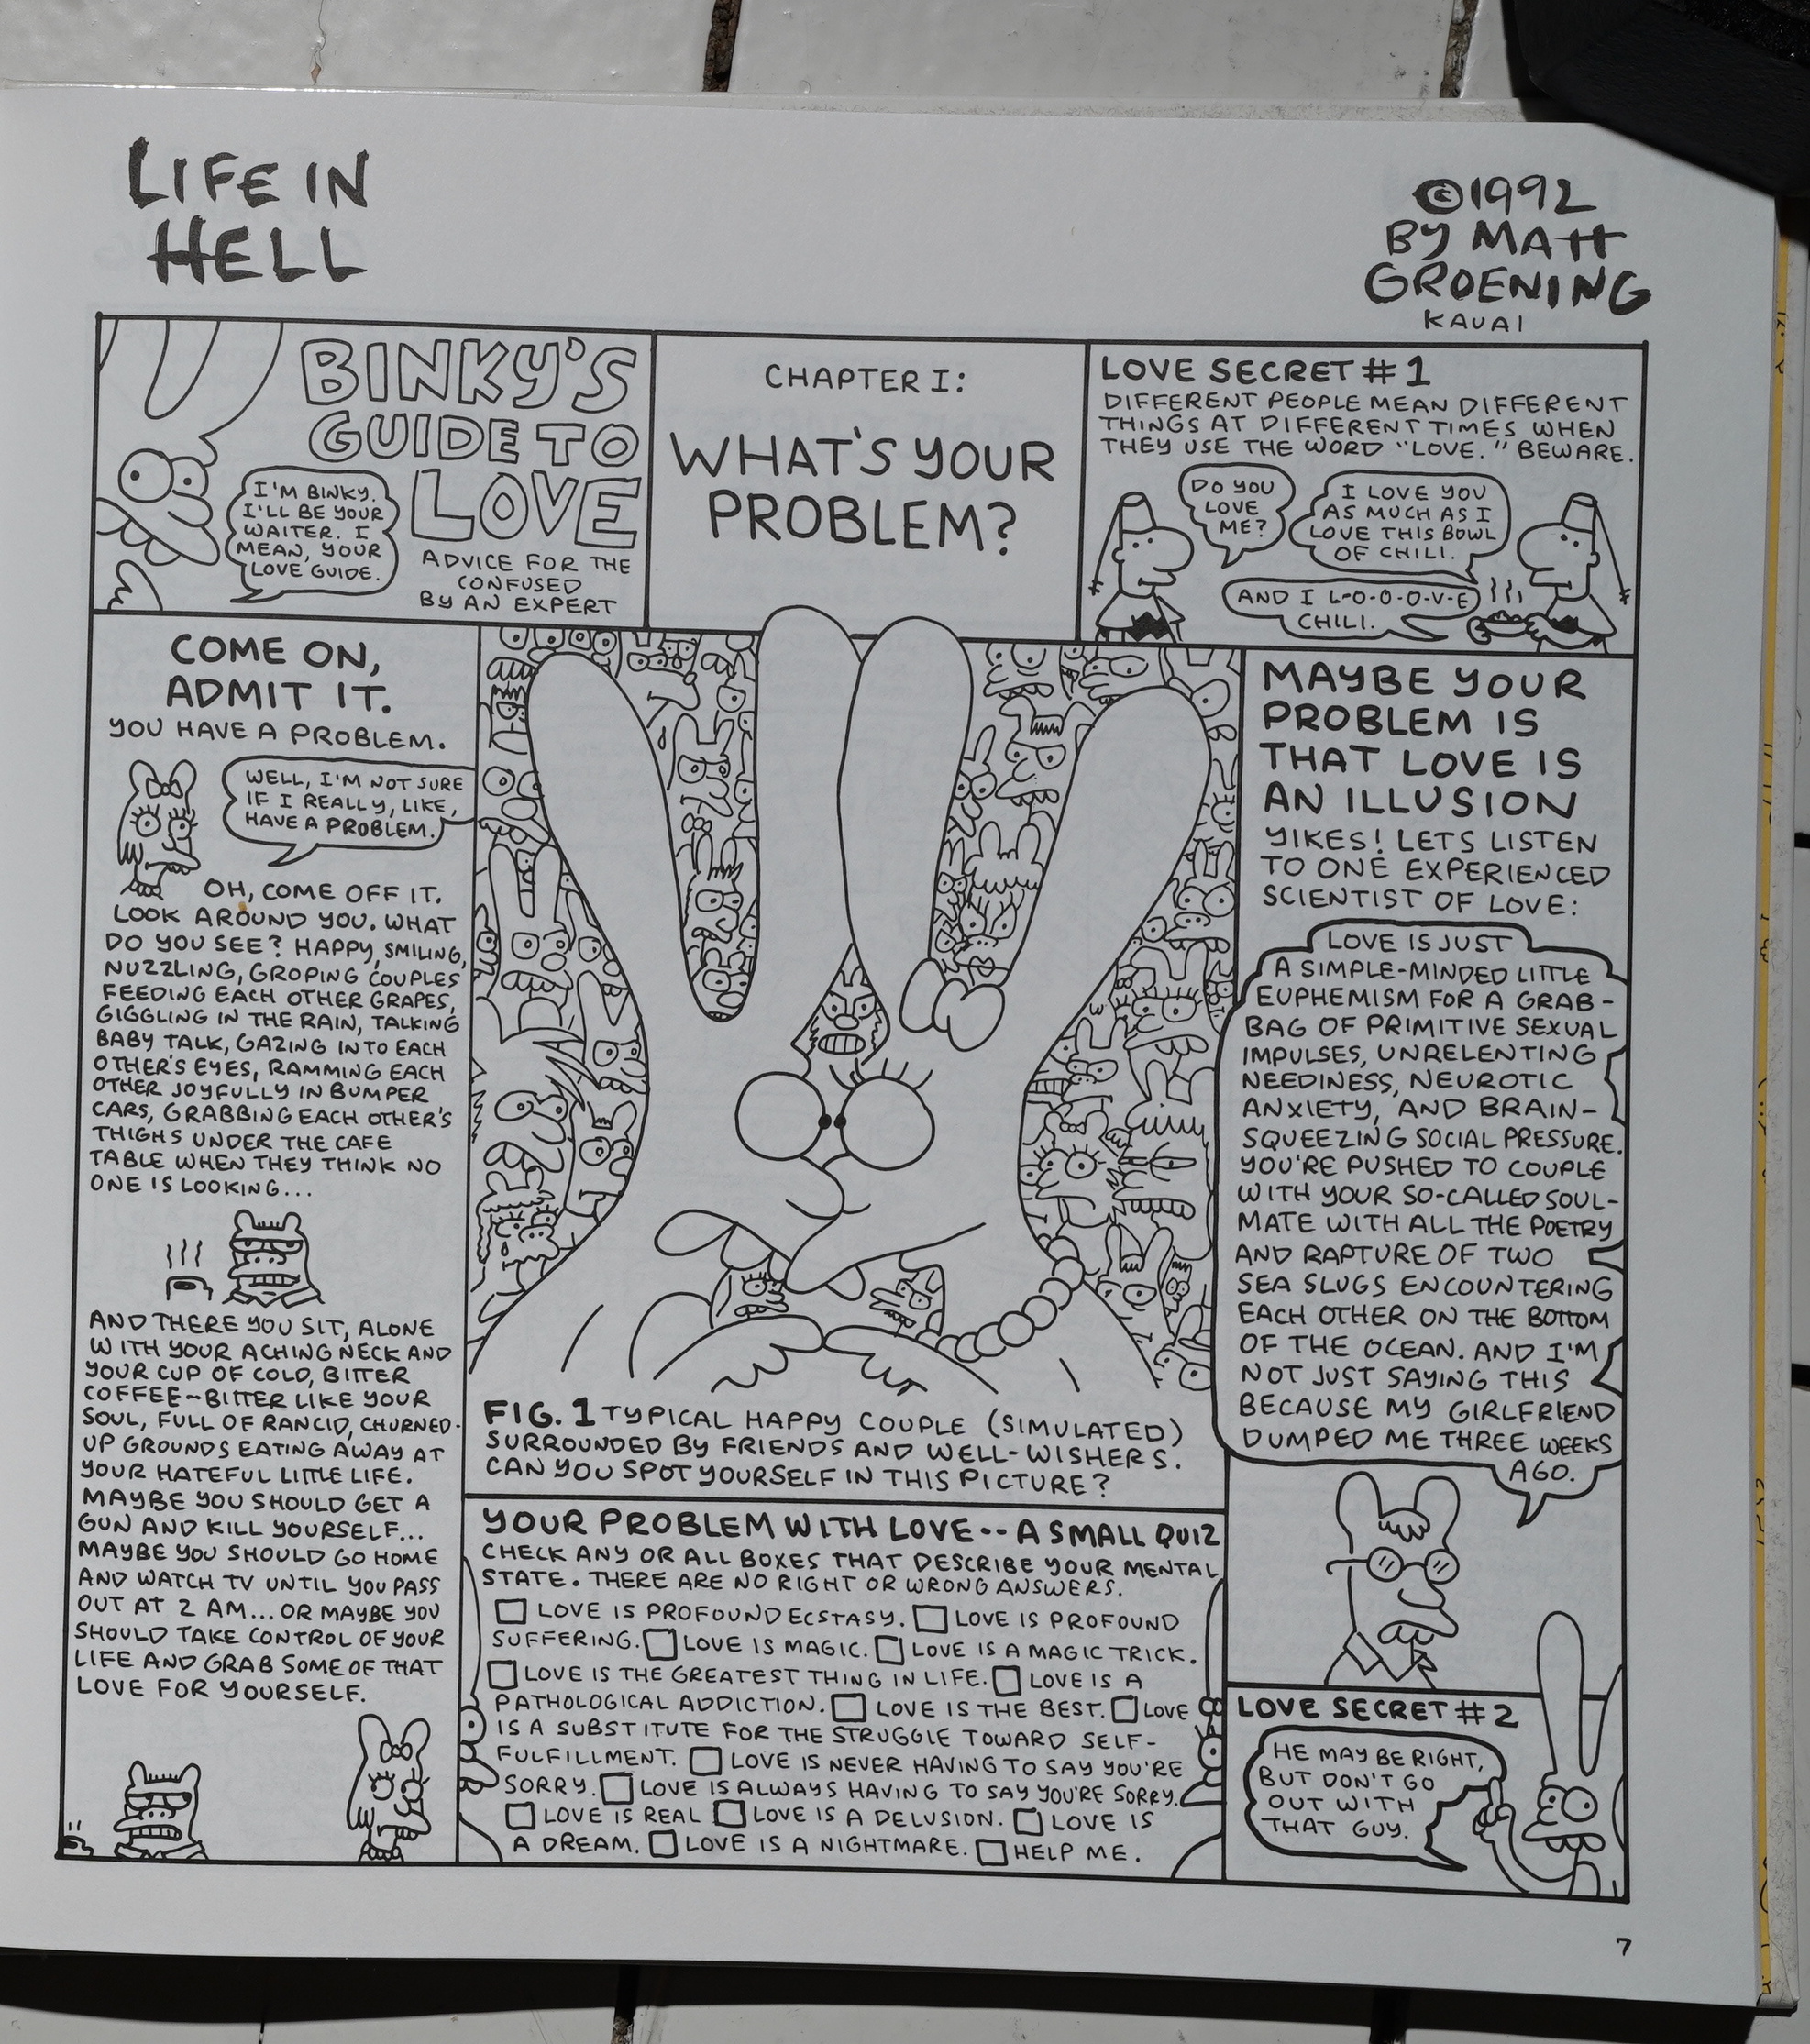 LIFE IN
HELL
©1992
BY MATT
GROENING
KAUAI
BINKY'S
GUIDE TO
LOVE
ADVICE FOR THE
CONFUSED
BY AN EXPERT
I'M BINKY.
I'LL BE YOUR
WAITER. I
MEAN, YOUR
LOVE GUIDE.
CHAPTER I:
WHAT'S YOUR
PROBLEM?
LOVE SECRET #1
DIFFERENT PEOPLE MEAN DIFFERENT
THINGS AT DIFFERENT TIMES WHEN
THEY USE THE WORD "LOVE." BEWARE.
DO YOU
LOVE
ME?
I LOVE YOU
AS MUCH AS I
LOVE THIS BOWL
OF CHILI.
AND I L-O-O-O-V-E
CHILI.
COME ON,
ADMIT IT.
YOU HAVE A PROBLEM.
WELL, I'M NOT SURE
IF I REALLY, LIKE,
HAVE A PROBLEM.
OH, COME OFF IT.
LOOK AROUND YOU. WHAT
DO YOU SEE? HAPPY, SMILING,
NUZZLING, GROPING COUPLES
FEEDING EACH OTHER GRAPES,
GIGGLING IN THE RAIN, TALKING
BABY TALK, GAZING INTO EACH
OTHER'S EYES, RAMMING EACH
OTHER JOYFULLY IN BUMPER
CARS, GRABBING EACH OTHER'S
THIGHS UNDER THE CAFE
TABLE WHEN THEY THINK NO
ONE IS LOOKING...
AND THERE YOU SIT, ALONE
WITH YOUR ACHING NECK AND
YOUR CUP OF COLD, BITTER
COFFEE--BITTER LIKE YOUR
SOUL, FULL OF RANCID, CHURNED-
UP GROUNDS EATING AWAY AT
YOUR HATEFUL LITTLE LIFE.
MAYBE YOU SHOULD GET A
GUN AND KILL YOURSELF...
MAYBE YOU SHOULD GO HOME
AND WATCH TV UNTIL YOU PASS
OUT AT 2 AM... OR MAYBE YOU
SHOULD TAKE CONTROL OF YOUR
LIFE AND GRAB SOME OF THAT
LOVE FOR YOURSELF.
FIG. 1 TYPICAL HAPPY COUPLE (SIMULATED)
SURROUNDED BY FRIENDS AND WELL-WISHERS.
CAN YOU SPOT YOURSELF IN THIS PICTURE?
YOUR PROBLEM WITH LOVE--A SMALL QUIZ
CHECK ANY OR ALL BOXES THAT DESCRIBE YOUR MENTAL
STATE. THERE ARE NO RIGHT OR WRONG ANSWERS.
LOVE IS PROFOUND ECSTASY. LOVE IS PROFOUND
SUFFERING. LOVE IS MAGIC. LOVE IS A MAGIC TRICK.
LOVE IS THE GREATEST THING IN LIFE. LOVE IS A
PATHOLOGICAL ADDICTION. LOVE IS THE BEST. LOVE
IS A SUBSTITUTE FOR THE STRUGGLE TOWARD SELF-
FULFILLMENT. LOVE IS NEVER HAVING TO SAY YOU'RE
SORRY. LOVE IS ALWAYS HAVING TO SAY YOU'RE SORRY.
LOVE IS REAL LOVE IS A DELUSION. LOVE IS
A DREAM. LOVE IS A NIGHTMARE. HELP ME.
MAYBE YOUR
PROBLEM IS
THAT LOVE IS
AN ILLUSION
YIKES! LETS LISTEN
TO ONE EXPERIENCED
SCIENTIST OF LOVE:
LOVE IS JUST
A SIMPLE-MINDED LITTLE
EUPHEMISM FOR A GRAB-
BAG OF PRIMITIVE SEXUAL
IMPULSES, UNRELENTING
NEEDINESS, NEUROTIC
ANXIETY, AND BRAIN-
SQUEEZING SOCIAL PRESSURE.
YOU'RE PUSHED TO COUPLE
WITH YOUR SO-CALLED SOUL-
MATE WITH ALL THE POETRY
AND RAPTURE OF TWO
SEA SLUGS ENCOUNTERING
EACH OTHER ON THE BOTTOM
OF THE OCEAN. AND I'M
NOT JUST SAYING THIS
BECAUSE MY GIRLFRIEND
DUMPED ME THREE WEEKS
AGO.
LOVE SECRET #2
HE MAY BE RIGHT,
BUT DON'T GO
OUT WITH
THAT GUY.
7